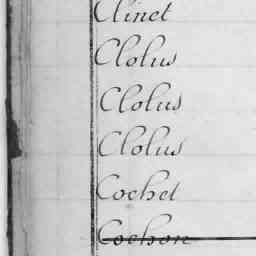 Clinet
Clolus
Clolus
Clolus
Cochet
Cochon